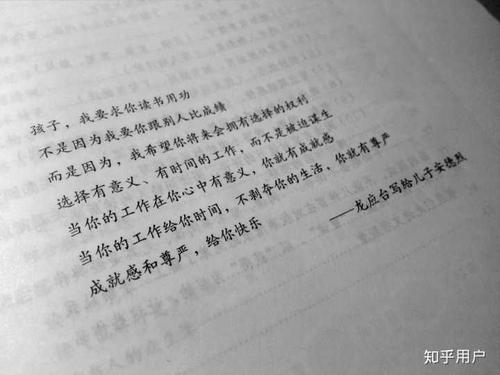 孩子，我要求你读书用功
不是因为我要你跟别人比成绩
而是因为，我希望你将来会拥有选择的权利
选择有意义、有时间的工作，而不是被迫谋生
当你的工作在你心中有意义，你就有成就感
当你的工作给你时间，不剥夺你的生活，你就有尊严
成就感和尊严，给你快乐
——龙应台写给儿子安德烈
知乎用户